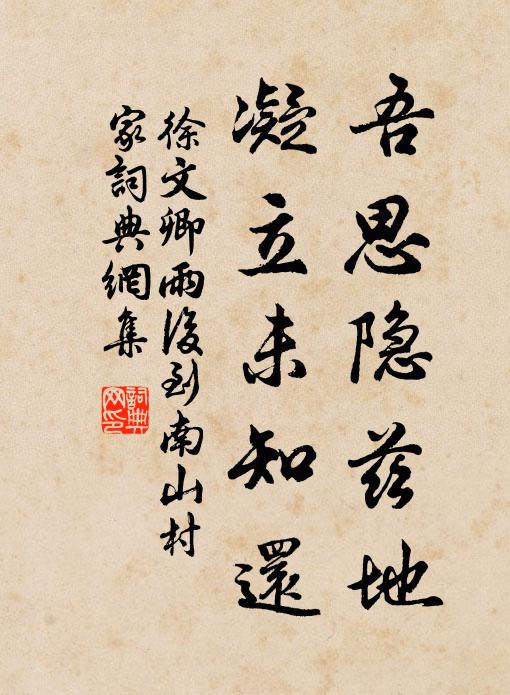 吾思隐兹地
凝立未知還
徐文卿雨後到南山村
家詞典網集
詞典網印